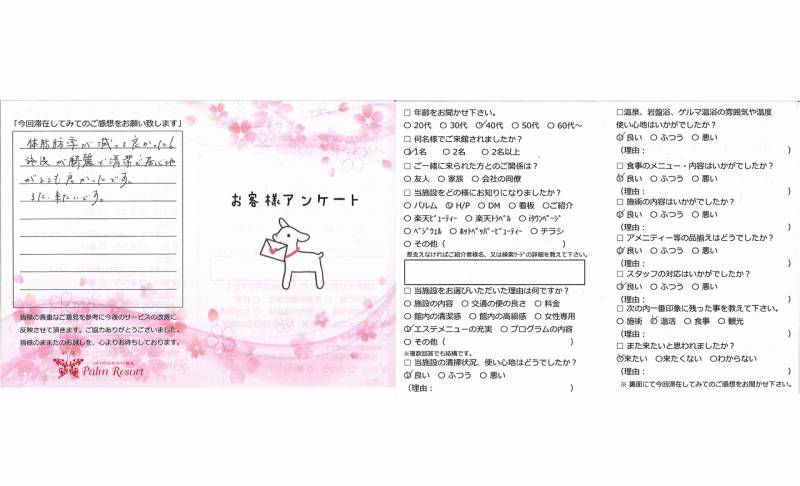 「今回滞在してみてのご感想をお願い致します」
体脂肪率が減って良かった
施設が綺麗で清潔で居心地
がとても良かったです。
また来たいです。
皆様の貴重なご意見を参考に今後のサービスの改善に
反映させて頂きます。ご協力ありがとうございました。
皆様のまたのお越しを、心よりお待ちしております。
Palm Resort
お客様アンケート
□ 年齢をお聞かせ下さい。
○ 20代 ○ 30代 ○ 40代 ○ 50代 ○ 60代～
□ 何名様でご来館されましたか？
○ 1名 ○ 2名 ○ 2名以上
□ ご一緒に来られた方とのご関係は？
○ 友人 ○ 家族 ○ 会社の同僚
□ 当施設をどの様にお知りになりましたか？
○ パルム ○ H/P ○ DM ○ 看板 ○ご紹介
○ 楽天ビューティー ○ 楽天トラベル ○ iタウンページ
○ ベジウェル ○ ホットペッパービューティー ○ チラシ
○ その他（ ）
差支えなければご紹介者様名、又は検索ワードの詳細を教えて下さい。
□ 当施設をお選びいただいた理由は何ですか？
○ 施設の内容 ○ 交通の便の良さ ○ 料金
○ 館内の清潔感 ○ 館内の高級感 ○ 女性専用
○ エステメニューの充実 ○ プログラムの内容
○ その他（ ）
※複数回答でも結構です。
□ 当施設の清掃状況、使い心地はどうでしたか？
○ 良い ○ ふつう ○ 悪い
（理由： ）
□温泉、岩盤浴、ゲルマ温浴の雰囲気や温度
使い心地はいかがでしたか？
○ 良い ○ ふつう ○ 悪い
（理由： ）
□ 食事のメニュー・内容はいかがでしたか？
○ 良い ○ ふつう ○ 悪い
（理由： ）
□ 施術の内容はいかがでしたか？
○ 良い ○ ふつう ○ 悪い
□ アメニティー等の品揃えはどうでしたか？
○ 良い ○ ふつう ○ 悪い
（理由： ）
□ スタッフの対応はいかがでしたか？
○ 良い ○ ふつう ○ 悪い
□ 次の内一番印象に残った事を教えて下さい。
○ 施術 ○ 温活 ○ 食事 ○ 観光
□ また来たいと思われましたか？
○来たい ○来たくない ○わからない
（理由： ）
※ 裏面にて今回滞在してみてのご感想をお聞かせ下さい。